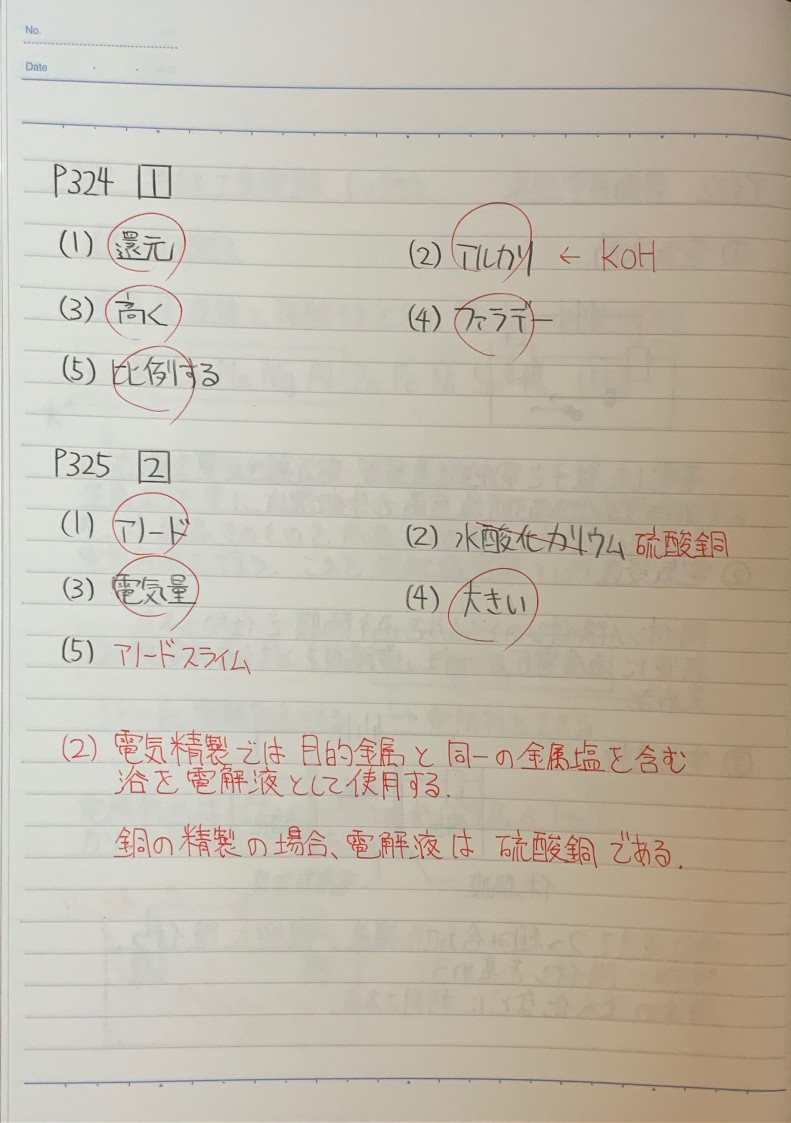 No.
Date
P324 1
(1) 還元 (2) アルカリ ← KOH
(3) 高く (4) ファラデー
(5) 比例する
P325 2
(1) アノード (2) 水酸化カリウム 硫酸銅
(3) 電気量 (4) 大きい
(5) アノードスライム
(2) 電気精製では目的金属と同一の金属塩を含む
浴を電解液として使用する.
銅の精製の場合、電解液は硫酸銅である.